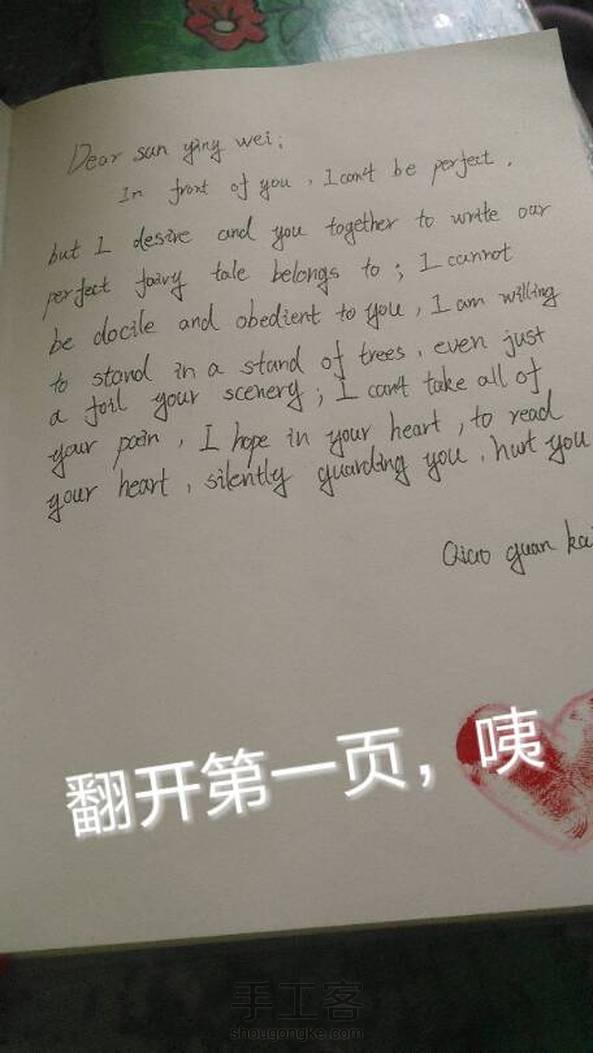 Dear sun ying wei:
In front of you, I can't be perfect.
but I desire and you together to write our
perfect fairy tale belongs to; I cannot
be docile and obedient to you, I am willing
to stand in a stand of trees, even just
a foil your scenery; I can't take all of
your pain, I hope in your heart, to read
your heart, silently guarding you, hurt you
Qiao guan kai
翻开第一页，咦
手工客
shougongke.com